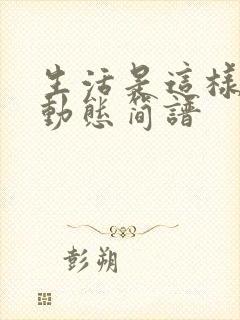 生活是這樣
動態简譜
彭朔